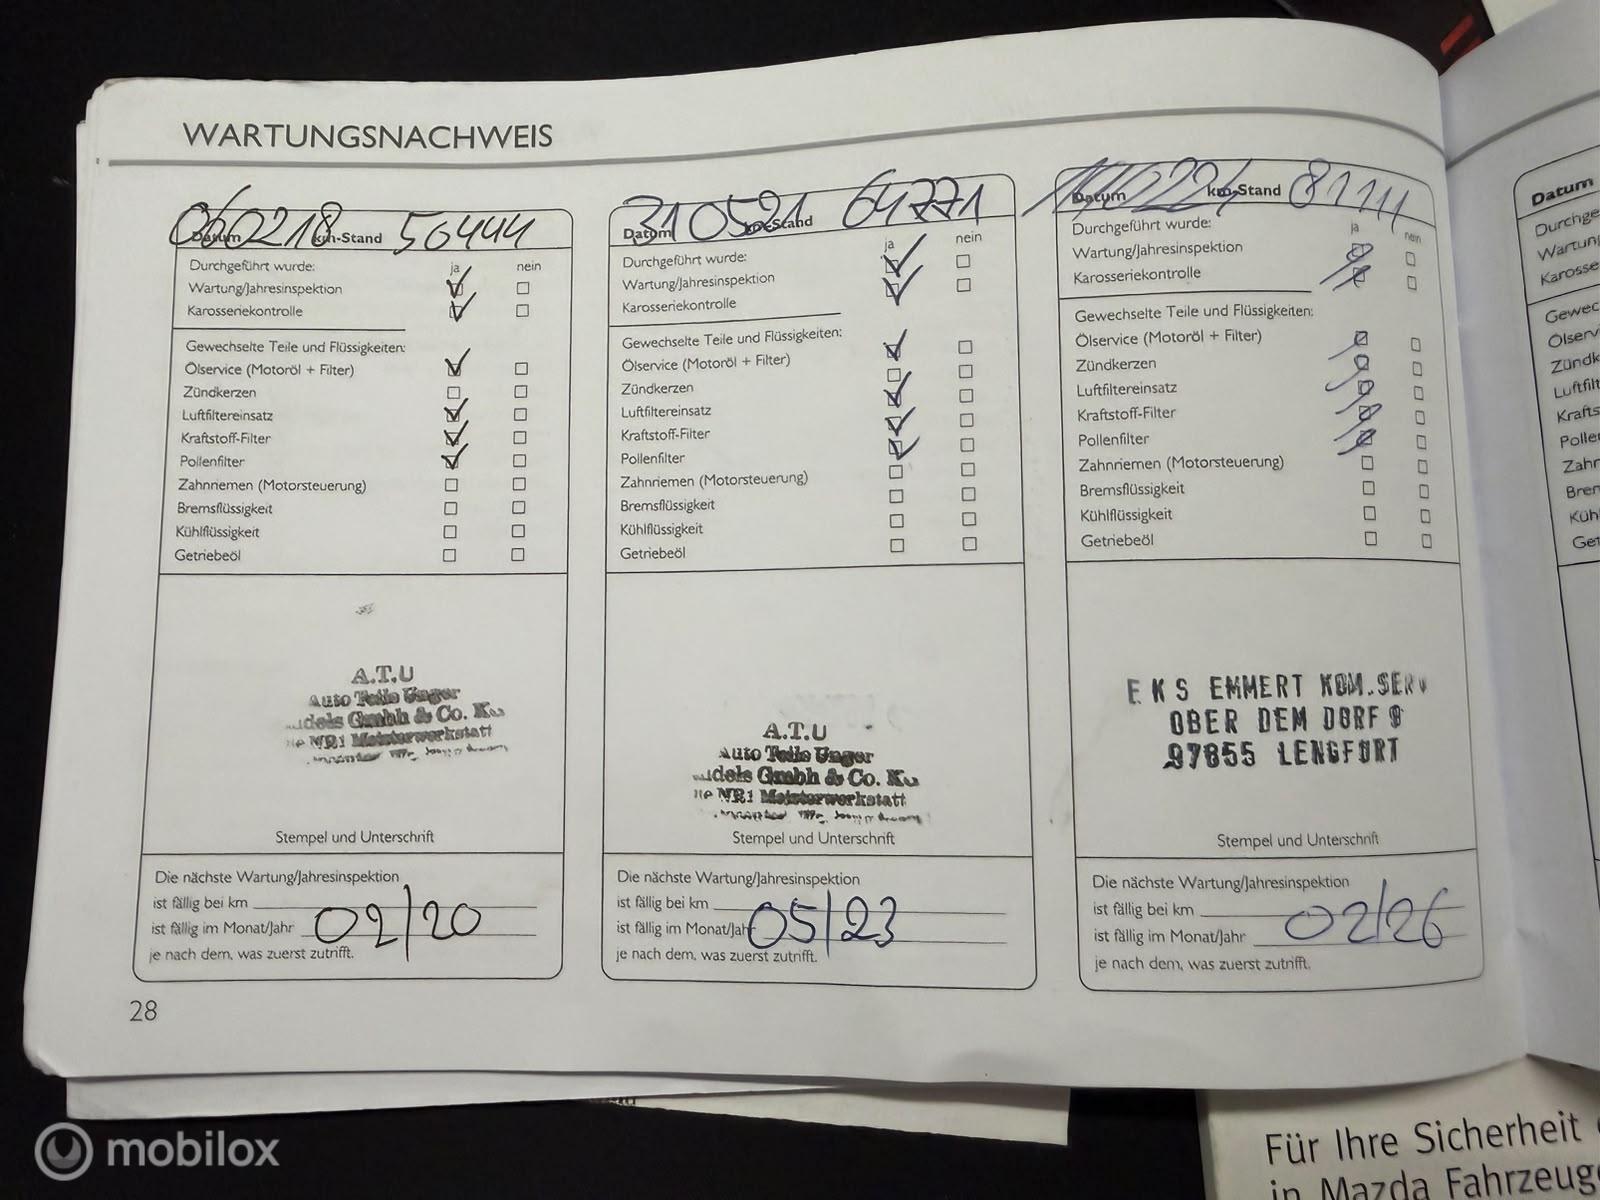 WARTUNGSNACHWEIS
060218 50444
Datum km-Stand
Durchgeführt wurde: ja nein
Wartung/Jahresinspektion
Karosseriekontrolle
Gewechselte Teile und Flüssigkeiten:
Ölservice (Motoröl + Filter)
Zündkerzen
Luftfiltereinsatz
Kraftstoff-Filter
Pollenfilter
Zahnriemen (Motorsteuerung)
Bremsflüssigkeit
Kühlflüssigkeit
Getriebeöl
A.T.U
Auto Teile Unger
Gmbh & Co.
NR1 Meisterwerkstatt
Stempel und Unterschrift
Die nächste Wartung/Jahresinspektion
ist fällig bei km
ist fällig im Monat/Jahr 02/20
je nach dem, was zuerst zutrifft.
28
310521 64771
Datum km-Stand
ja nein
Durchgeführt wurde:
Wartung/Jahresinspektion
Karosseriekontrolle
Gewechselte Teile und Flüssigkeiten:
Ölservice (Motoröl + Filter)
Zündkerzen
Luftfiltereinsatz
Kraftstoff-Filter
Pollenfilter
Zahnriemen (Motorsteuerung)
Bremsflüssigkeit
Kühlflüssigkeit
Getriebeöl
A.T.U
Auto Teile Unger
Gmbh & Co.
NR1 Meisterwerkstatt
Stempel und Unterschrift
Die nächste Wartung/Jahresinspektion
ist fällig bei km
ist fällig im Monat/Jahr 05/23
je nach dem, was zuerst zutrifft.
Datum km-Stand 81111
Durchgeführt wurde: ja nein
Wartung/Jahresinspektion
Karosseriekontrolle
Gewechselte Teile und Flüssigkeiten:
Ölservice (Motoröl + Filter)
Zündkerzen
Luftfiltereinsatz
Kraftstoff-Filter
Pollenfilter
Zahnriemen (Motorsteuerung)
Bremsflüssigkeit
Kühlflüssigkeit
Getriebeöl
EKS EMMERT KOM.SERV
OBER DEM DORF
97855 LENGFURT
Stempel und Unterschrift
Die nächste Wartung/Jahresinspektion
ist fällig bei km
ist fällig im Monat/Jahr 02/26
je nach dem, was zuerst zutrifft.
Datum
Für Ihre Sicherheit
in Mazda Fahrzeuge
mobilox